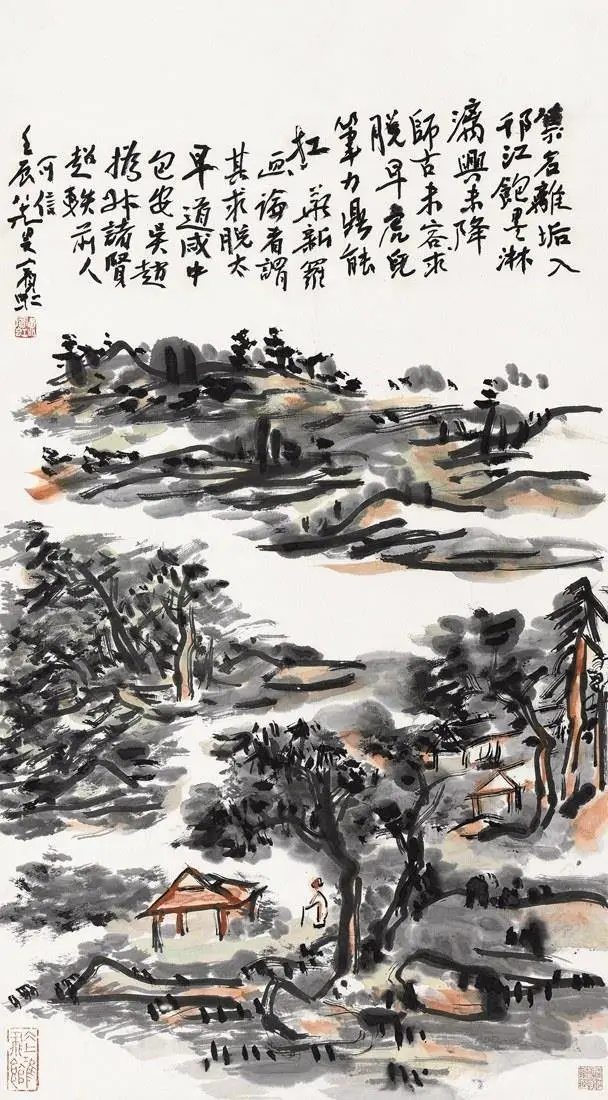 集名離垢入
邗江飽墨淋
漓興未降
師古未容求
脫早虎兒
筆力鼎能
扛 華新羅
畫論者謂
其求脫太
早道咸中
包安吳趙
撝叔諸賢
超軼前人
可信
壬辰八十九叟賓虹